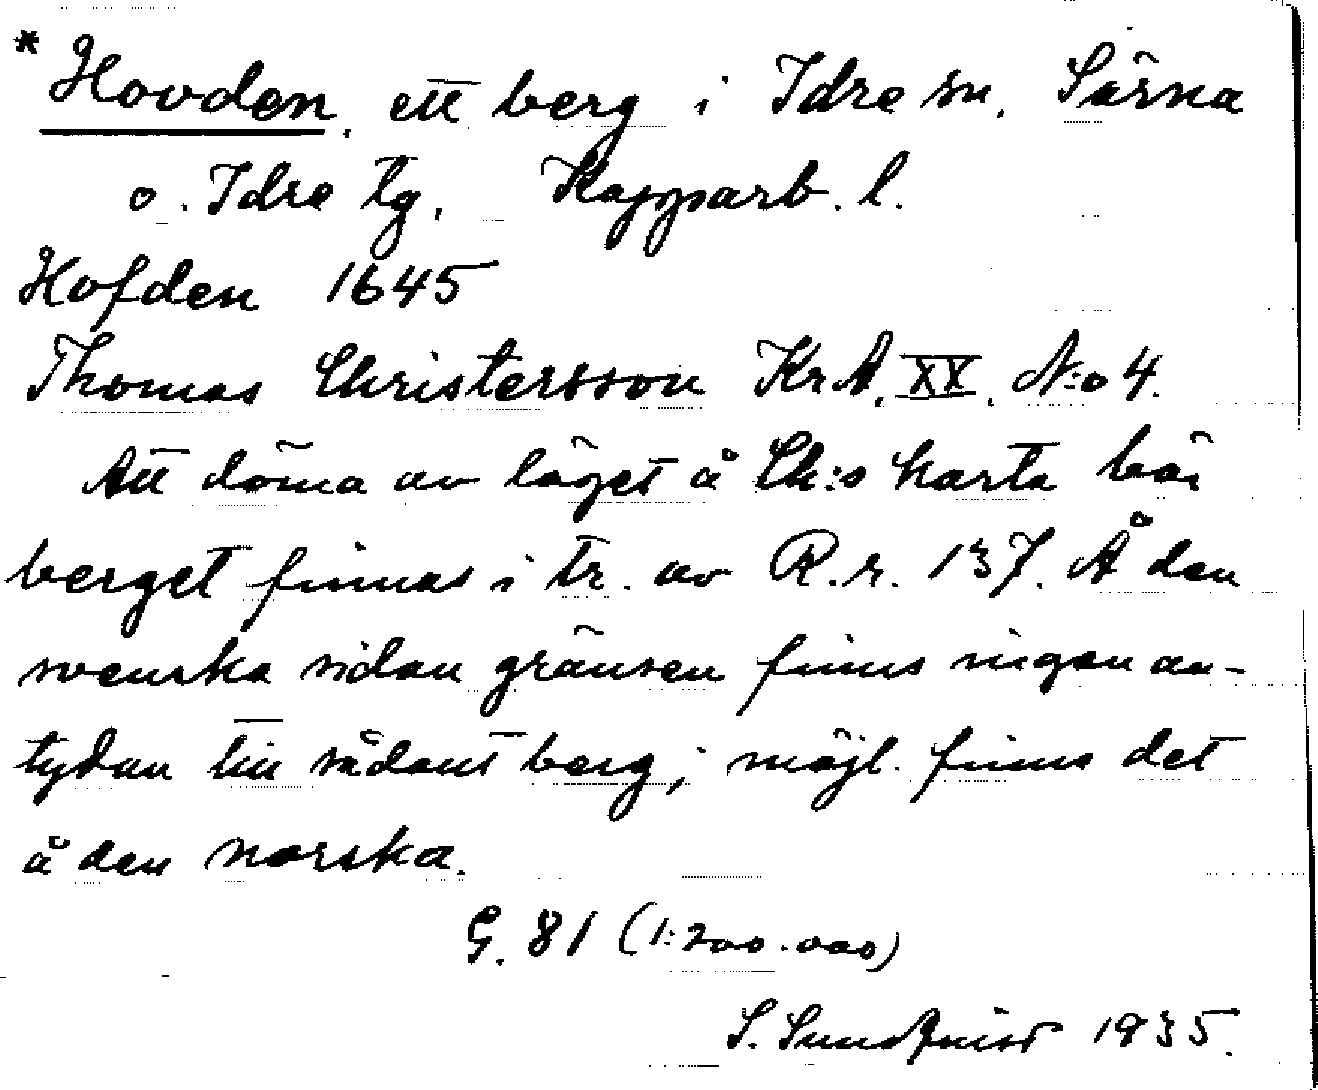 * Hovden, ett berg i Idre sn. Särna
o. Idre tg. Kopparb. l.
Hofden 1645
Thomas Christersson KrA. XX. N:o 4.
Att döma av läget å Ch:s karta bör
berget finnas i tr. av R.r. 137. Å den
svenska sidan gränsen finns ingen an-
tydan till sådant berg; möjl. finns det
å den norska.
G. 81 (1:200.000)
S. Sundqvist 1935.